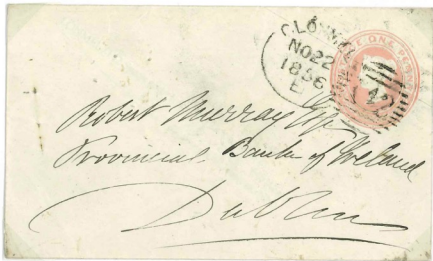 CLONMEL
NO 22
1856
E
ONE PENNY
Robert Murray Esqr
Provincial Bank of Ireland
Dublin